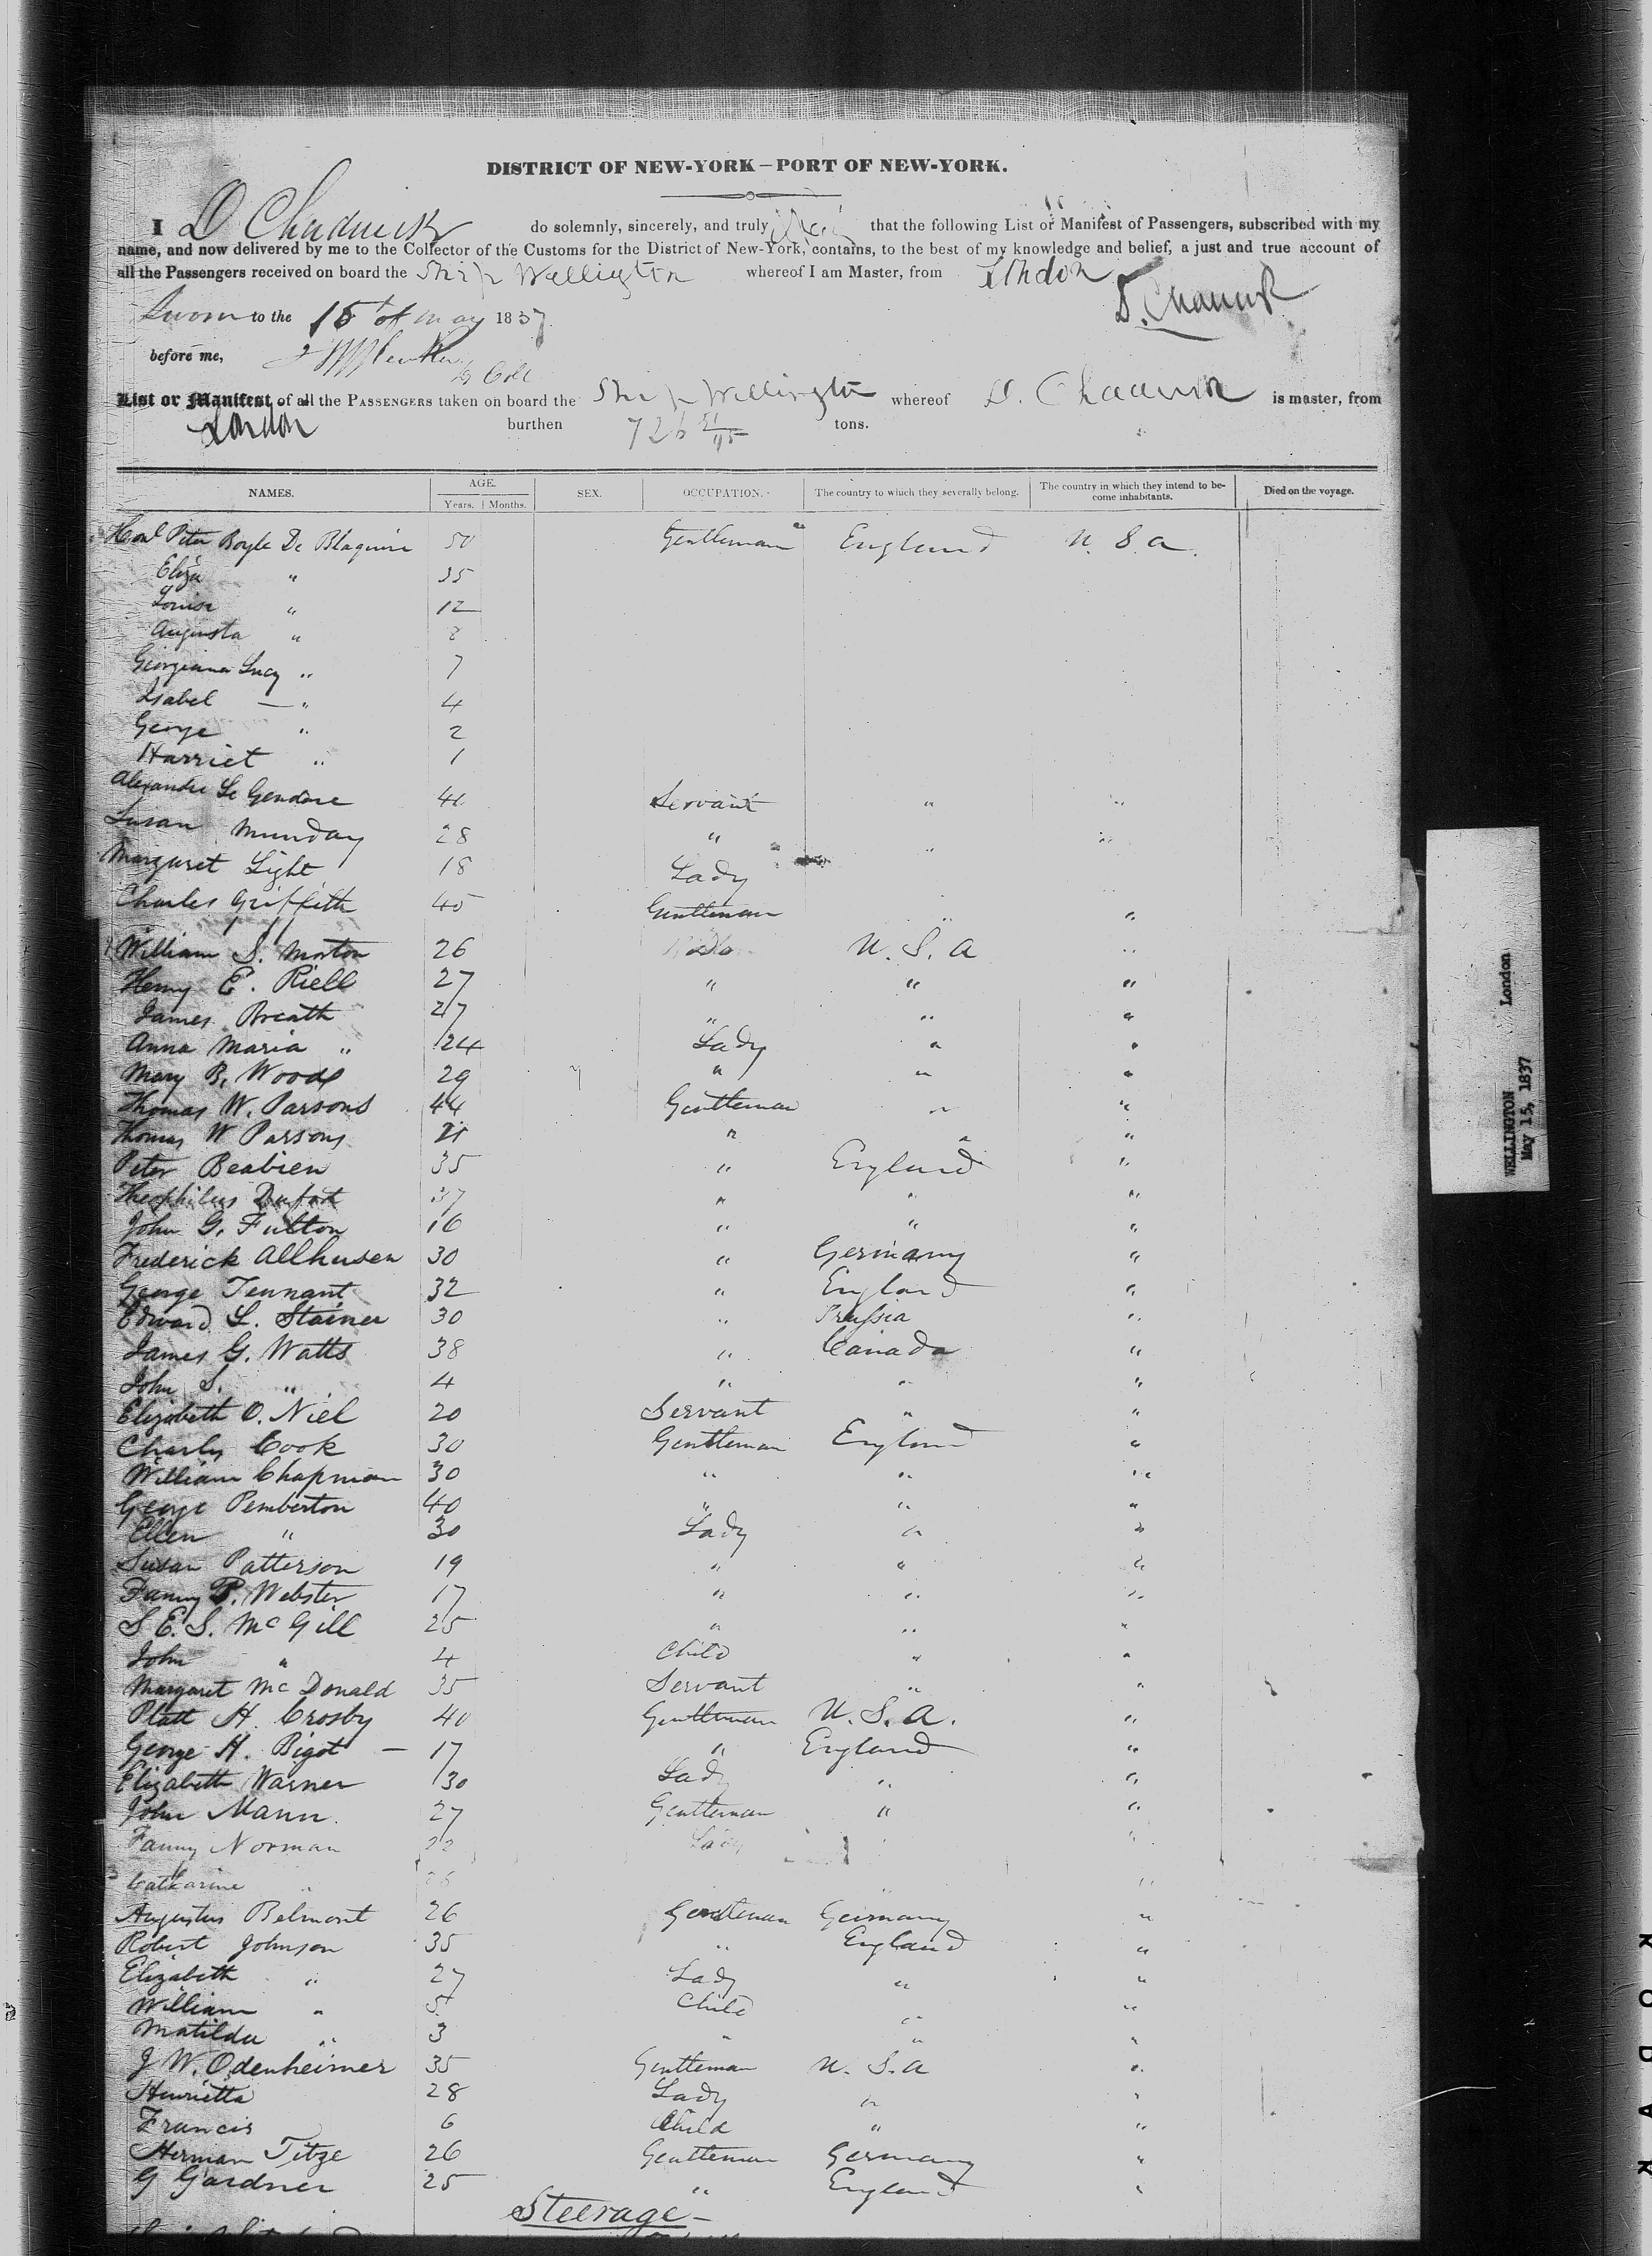 DISTRICT OF NEW-YORK—PORT OF NEW-YORK.
I D Chadwick do solemnly, sincerely, and truly that the following List or Manifest of Passengers, subscribed with my
name, and now delivered by me to the Collector of the Customs for the District of New-York, contains, to the best of my knowledge and belief, a just and true account of
all the Passengers received on board the Ship Wellington whereof I am Master, from London
D. Chadwick
Sworn to the 15 of May 1837
before me,
List or Manifest of all the PASSENGERS taken on board the Ship Wellington whereof D. Chadwick is master, from
London burthen 726 tons.
NAMES. AGE. SEX. OCCUPATION. The country to which they severally belong. The country in which they intend to become inhabitants. Died on the voyage.
Years. Months.
Honl Peter Boyle De Blaquiere 50 Gentleman England U. S. A.
Eliza " 35
Louisa " 12
Augusta " 8
Georgiana Lucy " 7
Isabel — " 4
George " 2
Harriet " 1
Alexandre Le Gendre Servant " "
Susan Munday 28 " " "
Margaret Light 18 Lady
Charles Griffith 45 Gentleman " "
William S. Morton 26 Do U. S. A "
Henry E. Riell 27 " " "
James Breath 27 " " "
Anna Maria " 24 Lady " "
Mary B. Wood 29 " " "
Thomas W. Parsons 44 Gentleman " "
Thomas W Parsons 21 " " "
Peter Beabien 35 " England "
Theophilus Dufort 37 " " "
John G. Fulton 16 " " "
Frederick Allhusen 30 " Germany "
George Tennant 32 " England "
Edward L. Stainer 30 " Prussia "
James G. Watts 38 " Canada "
John S. " 4 " " "
Elizabeth O. Niel 20 Servant " "
Charles Cook 30 Gentleman England "
William Chapman 30 " " "
George Pemberton 40 " " "
Ellen " 30 Lady " "
Susan Patterson 19 " " "
Fanny P. Webster 17 " " "
S E. S. McGill 25 " " "
John " 4 Child " "
Margaret McDonald 35 Servant " "
Platt H. Crosby 40 Gentleman U. S. A. "
George H. Bigot — 17 " England "
Elizabeth Warner 30 Lady " "
John Mann. 27 Gentleman " "
Fanny Norman 22 Lady "
Catharine " " "
Augustus Belmont 26 Gentleman Germany "
Robert Johnson 35 " England "
Elizabeth " 27 Lady " "
William " 5 Child " "
Matilda " 3 " " "
J W. Odenheimer 35 Gentleman U. S. A "
Henrietta 28 Lady " "
Francis 6 Child " "
Herman Titze 26 Gentleman Germany "
G Gardner 25 " England "
Steerage—
WELLINGTON London
May 15, 1837